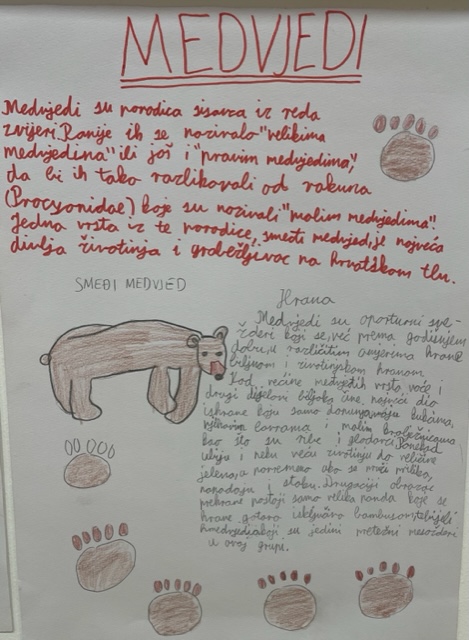 MEDVJEDI
Medvjedi su porodica sisavca iz reda
zvijeri. Ranije ih se nazivalo "velikima
medvjedima" ili još i "pravim medvjedima",
da bi ih tako razlikovali od rakuna
(Procyonidae) koje su nazivali "malim medvjedima".
Jedna vrsta iz te porodice, smeđi medvjed, je najveća
divlja životinja i grabežljivac na hrvatskom tlu.
SMEĐI MEDVJED
Hrana
Medvjedi su oportuni sve-
žderi koji se, već prema godišnjem
dobu, u različitim omjerima hrane
biljnom i životinjskom hranom.
Kod većine medvjeđih vrsta, voće i
drugi dijelovi biljaka čine najveći dio
ishrane koju samo dopunjavaju kukcima,
njihovim larvama i malim kralježnjacima
kao što su ribe i glodavci. Ponekad
ubiju i neku veću životinju do veličine
jelena, a povremeno ako se pruži prilika,
napadaju i stoku. Drugačiji obrazac
prehrane postoji samo velika panda koja se
hrane gotovo isključivo bambusom,
medvjedi koji su jedini pretežni mesožderi
u ovoj grupi.